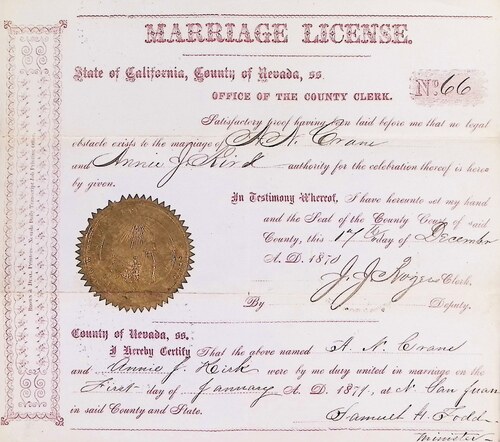 MARRIAGE LICENSE.
State of California, County of Nevada, ss.
No. 66
OFFICE OF THE COUNTY CLERK.
Satisfactory proof having been laid before me that no legal
obstacle exists to the marriage of A. N. Crane
and Annie J. Kirk authority for the celebration thereof is here-
by given.
In Testimony Whereof, I have hereunto set my hand
and the Seal of the County Court of said
County, this 17th day of December
A. D. 1870
J. J. Rogers Clerk.
By Deputy.
County of Nevada, ss.
I Hereby Certify That the above named A. N. Crane
and Annie J. Kirk were by me duly united in marriage on the
First day of January A. D. 1871, at N. San Juan
in said County and State.
Samuel H. Todd
Minister